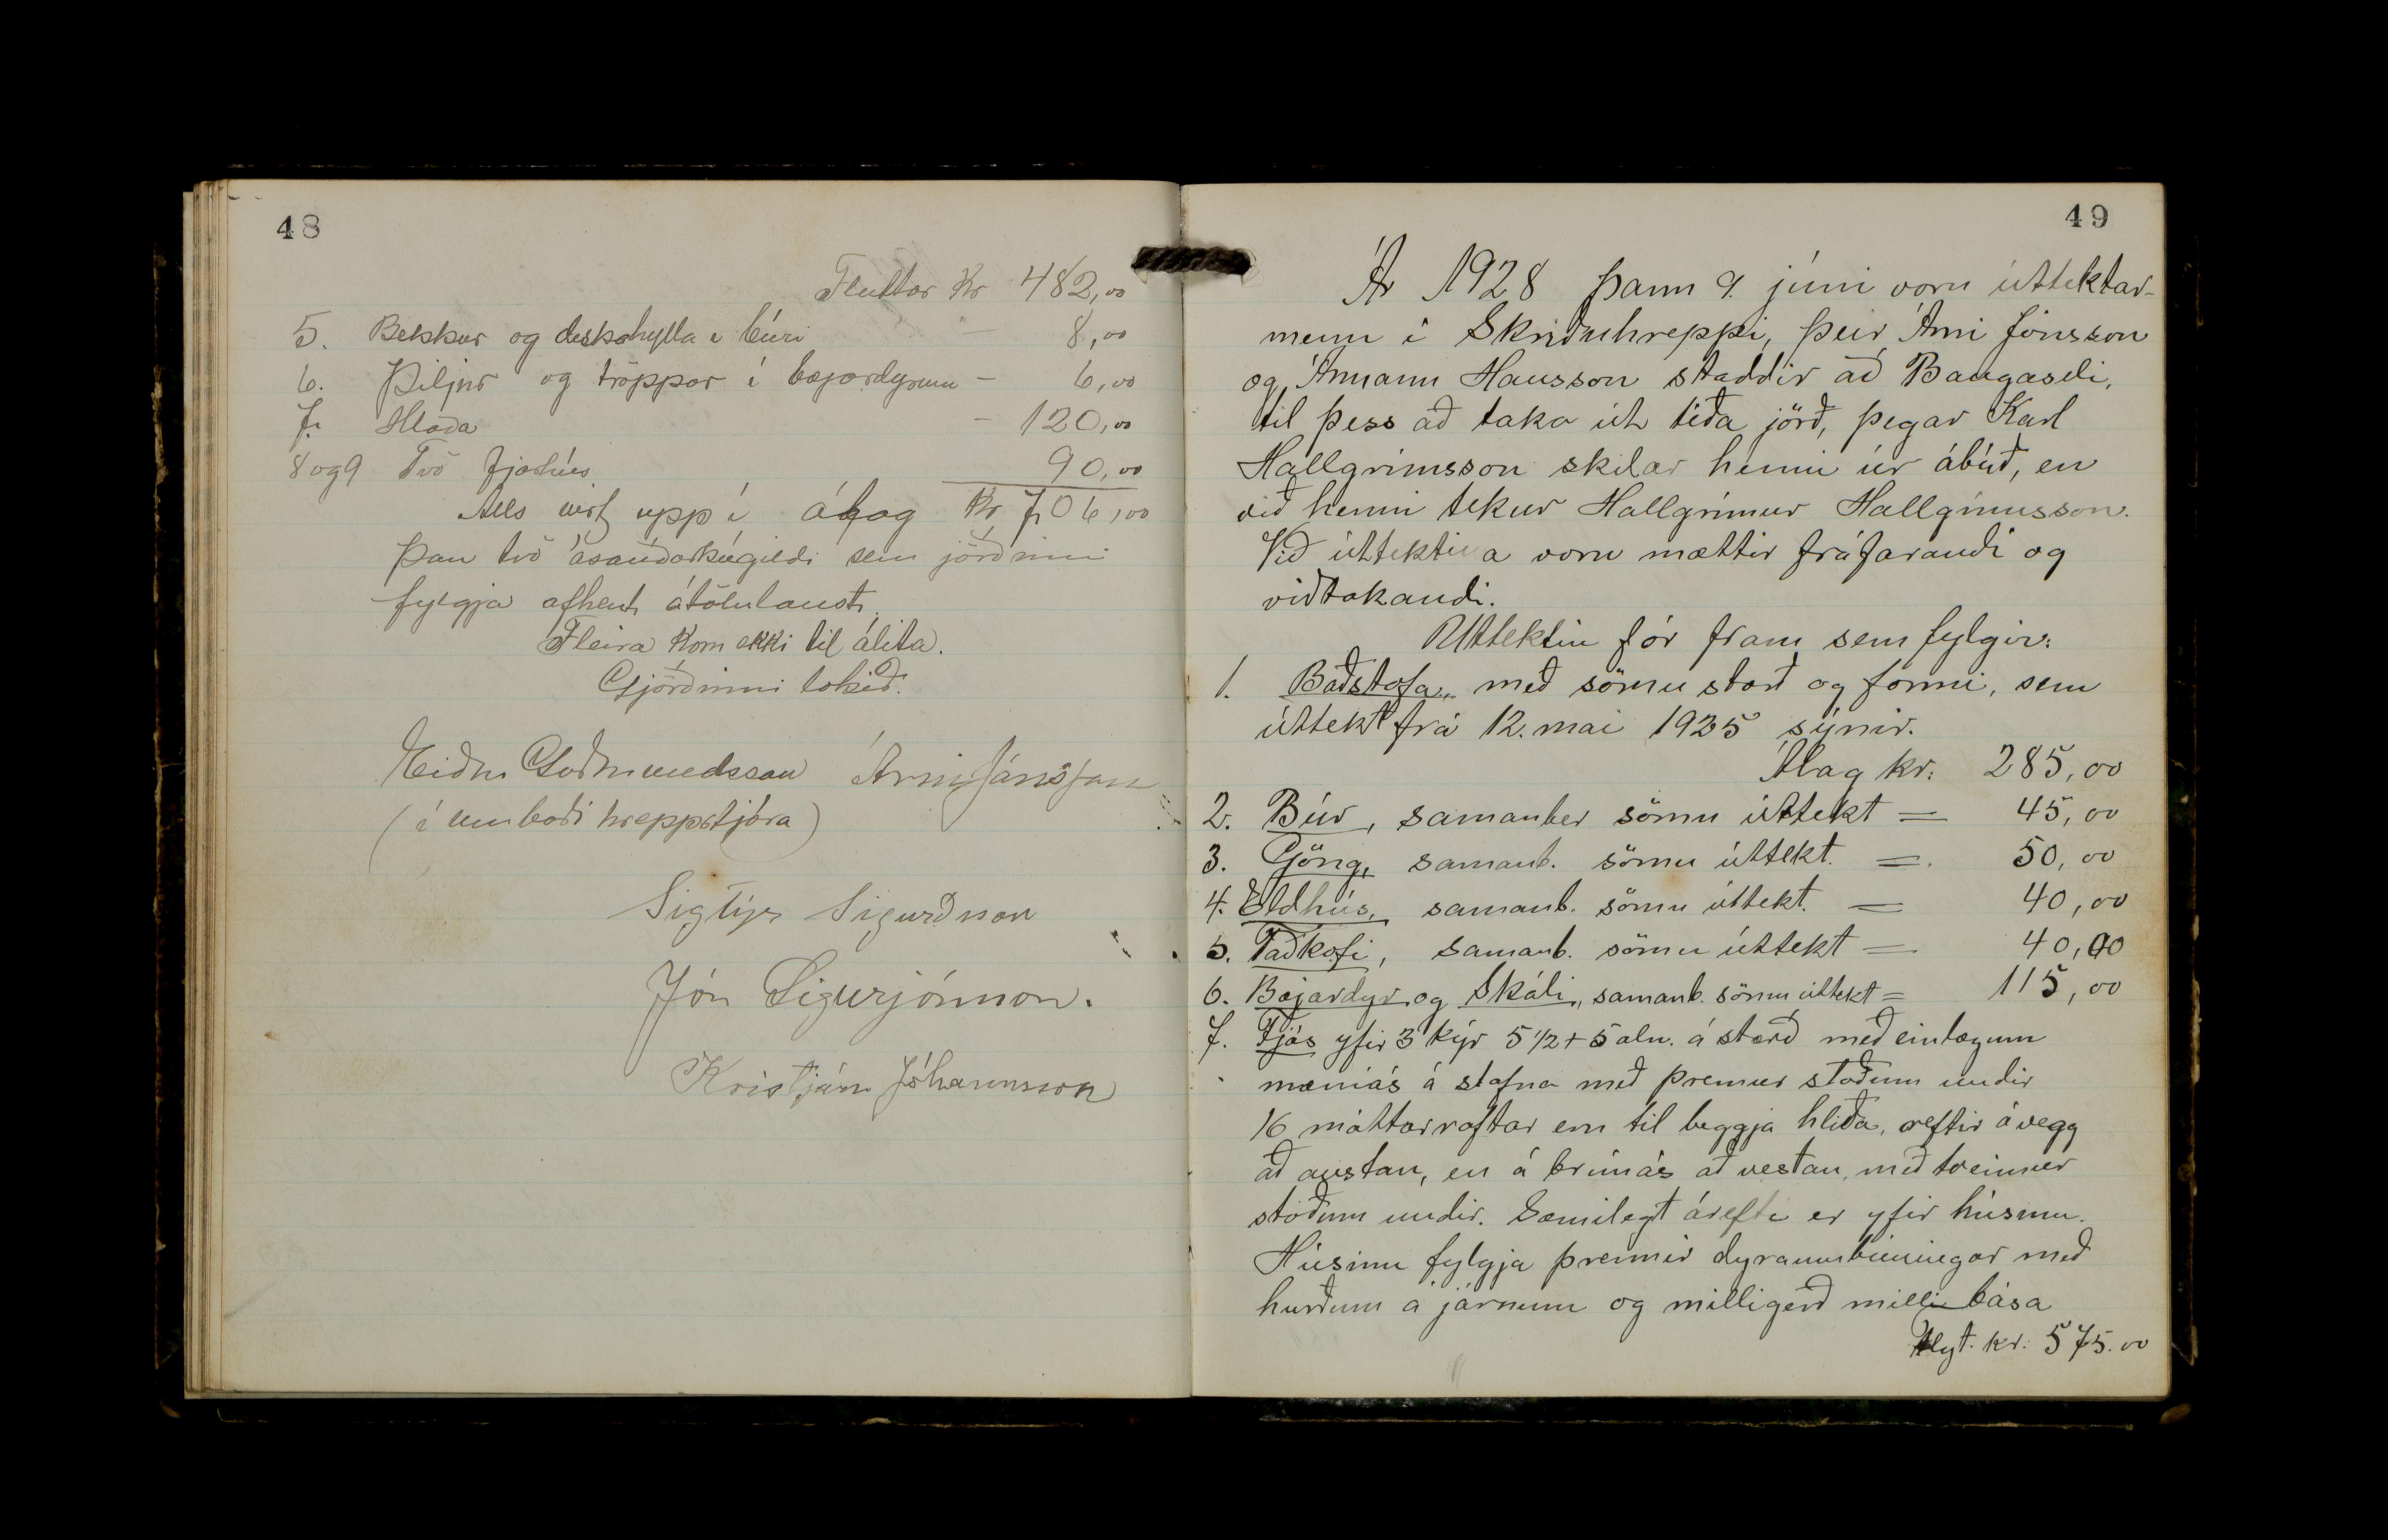 48
Fluttar kr 482,00
5. Bekkur og diskahylla í búri — 8,00
6. Þiljur og tröppur í bæjardyrum — 6,00
7. Hlaða — 120,00
8 og 9 Tvö fjárhús 90,00
Alls virt upp í álag kr 706,00
Þau tvö ásauðarkúgildi sem jörðinni
fylgja afhent átölulaust.
Fleira kom ekki til álita.
Gjörðinni lokið.
Eiður Guðmundsson Árni Jónsson
(í umboði hreppstjóra)
Sigtýr Sigurðsson
Jón Sigurjónsson.
Kristján Jóhannsson
49
Ár 1928 þann 9. júní voru úttektar-
menn í Skriðuhreppi, þeir Árni Jónsson
og Ármann Hansson staddir að Baugaseli,
til þess að taka út téða jörð, þegar Karl
Hallgrímsson skilar henni úr ábúð, en
við henni tekur Hallgrímur Hallgrímsson.
Við úttektina voru mættir fráfarandi og
viðtakandi.
Úttektin fór fram sem fylgir:
1. Baðstofa, með sömu stærð og formi, sem
úttekt frá 12. maí 1925 sýnir.
Álag kr: 285,00
2. Búr, samanber sömu úttekt = 45,00
3. Göng, samanb. sömu úttekt. = 50,00
4. Eldhús, samanb. sömu úttekt. = 40,00
5. Taðkofi, samanb. sömu úttekt = 40,00
6. Bæjardyr og Skáli, samanb. sömu úttekt = 115,00
7. Fjós yfir 3 kýr 5 1/2 + 5 aln. á stærð með einlægum
mæniás á stafna með þremur stoðum undir
16 máttarraftar eru til beggja hliða, reftir á vegg
að austan, en á brúnás að vestan, með tveimur
stoðum undir. Sæmilegt árefti er yfir húsinu.
Húsinu fylgja þrennir dyraumbúningar með
hurðum á járnum og milligerð milli bása
Flyt. kr: 575.00